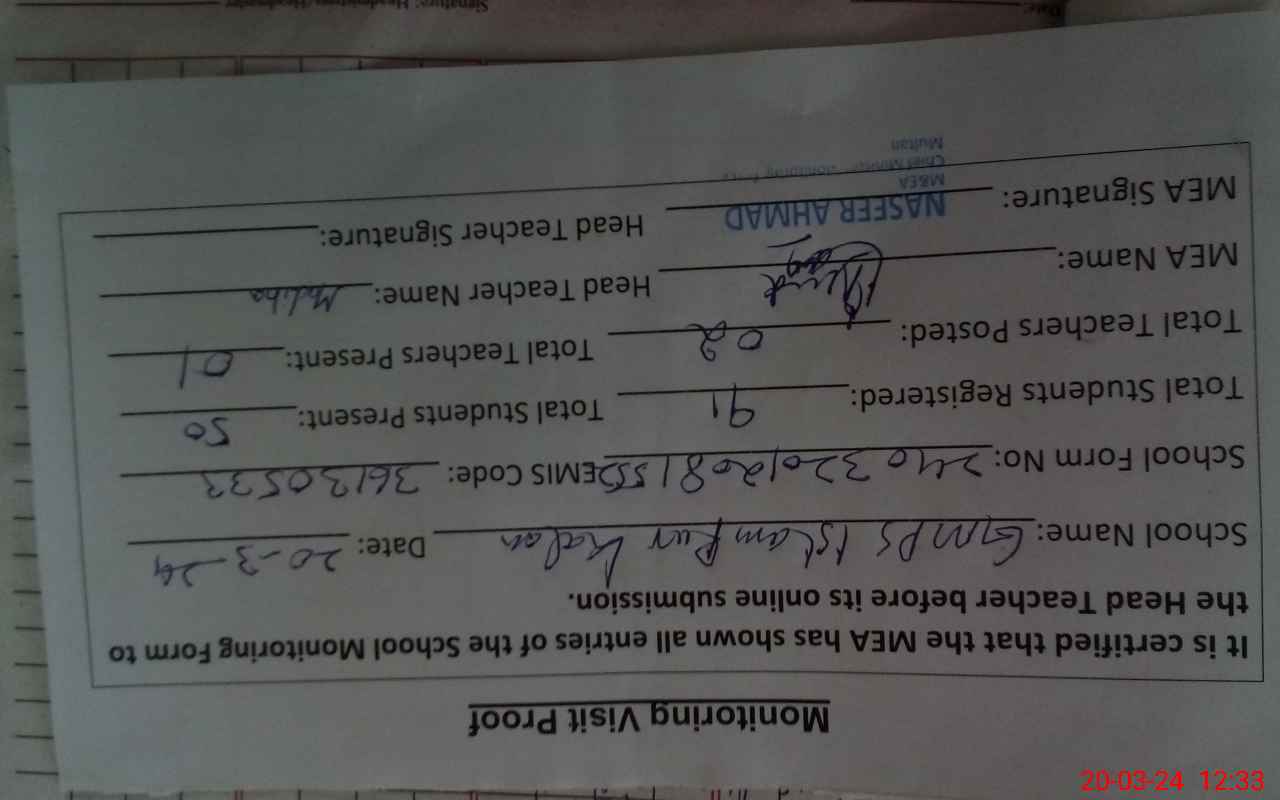 Monitoring Visit Proof
It is certified that the MEA has shown all entries of the School Monitoring Form to
the Head Teacher before its online submission.
School Name: GMPS Islam Pur Kalan Date: 20-3-24
School Form No: 2403201208155 EMIS Code: 36130533
Total Students Registered: 91 Total Students Present: 50
Total Teachers Posted: 02 Total Teachers Present: 01
MEA Name: Head Teacher Name: Maliha
MEA Signature: Head Teacher Signature:
NASEER AHMAD
M&EA
Chief Minister Monitoring Force
Multan
Date: Signature: Headmistress/Headmaster
20-03-24 12:33